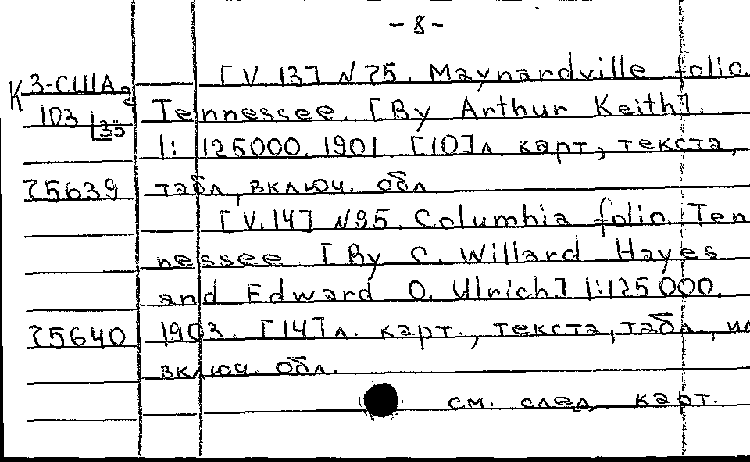 - 8 -
[V. 13] N 75. Maynardville folio
К 3-США
Tennessee. [By Arthur Keith].
103
35
1: 125000. 1901. [10] л карт, текста,
75639 табл, включ. обл
[V. 14] N 95. Columbia folio Ten
nessee. [By C. Willard Hayes
and Edward O. Ulrich] 1:125 000.
75640 1903. [14] л. карт., текста, табл,
включ. обл.
см. след. карт.